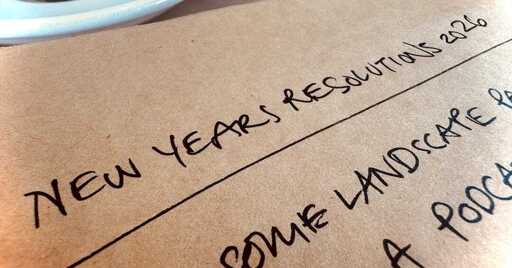 NEW YEARS RESOLUTIONS 2026
SOME LANDSCAPE
A PODCA